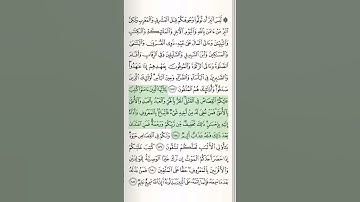 ۞ لَّيْسَ الْبِرَّ أَن تُوَلُّوا وُجُوهَكُمْ قِبَلَ الْمَشْرِقِ وَالْمَغْرِبِ وَلَٰكِنَّ
الْبِرَّ مَنْ ءَامَنَ بِاللَّهِ وَالْيَوْمِ الْءَاخِرِ وَالْمَلَٰئِكَةِ وَالْكِتَٰبِ
وَالنَّبِيِّـۧنَ وَءَاتَى الْمَالَ عَلَىٰ حُبِّهِۦ ذَوِى الْقُرْبَىٰ وَالْيَتَٰمَىٰ
وَالْمَسَٰكِينَ وَابْنَ السَّبِيلِ وَالسَّآئِلِينَ وَفِى الرِّقَابِ وَأَقَامَ
الصَّلَوٰةَ وَءَاتَى الزَّكَوٰةَ وَالْمُوفُونَ بِعَهْدِهِمْ إِذَا عَٰهَدُوا
وَالصَّٰبِرِينَ فِى الْبَأْسَآءِ وَالضَّرَّآءِ وَحِينَ الْبَأْسِ أُولَٰئِكَ الَّذِينَ
صَدَقُوا وَأُولَٰئِكَ هُمُ الْمُتَّقُونَ ١٧٧ يَٰأَيُّهَا الَّذِينَ ءَامَنُوا كُتِبَ
عَلَيْكُمُ الْقِصَاصُ فِى الْقَتْلَى الْحُرُّ بِالْحُرِّ وَالْعَبْدُ بِالْعَبْدِ وَالْأُنثَىٰ
بِالْأُنثَىٰ فَمَنْ عُفِىَ لَهُۥ مِنْ أَخِيهِ شَىْءٌ فَاتِّبَاعٌۢ بِالْمَعْرُوفِ وَأَدَآءٌ
إِلَيْهِ بِإِحْسَٰنٍ ذَٰلِكَ تَخْفِيفٌ مِّن رَّبِّكُمْ وَرَحْمَةٌ فَمَنِ اعْتَدَىٰ
بَعْدَ ذَٰلِكَ فَلَهُۥ عَذَابٌ أَلِيمٌ ١٧٨ وَلَكُمْ فِى الْقِصَاصِ حَيَوٰةٌ
يَٰأُولِى الْأَلْبَٰبِ لَعَلَّكُمْ تَتَّقُونَ ١٧٩ كُتِبَ عَلَيْكُمْ
إِذَا حَضَرَ أَحَدَكُمُ الْمَوْتُ إِن تَرَكَ خَيْرًا الْوَصِيَّةُ لِلْوَٰلِدَيْنِ
وَالْأَقْرَبِينَ بِالْمَعْرُوفِ حَقًّا عَلَى الْمُتَّقِينَ ١٨٠ فَمَنۢ بَدَّلَهُۥ
بَعْدَمَا سَمِعَهُۥ فَإِنَّمَآ إِثْمُهُۥ عَلَى الَّذِينَ يُبَدِّلُونَهُۥ إِنَّ اللَّهَ سَمِيعٌ عَلِيمٌ ١٨١